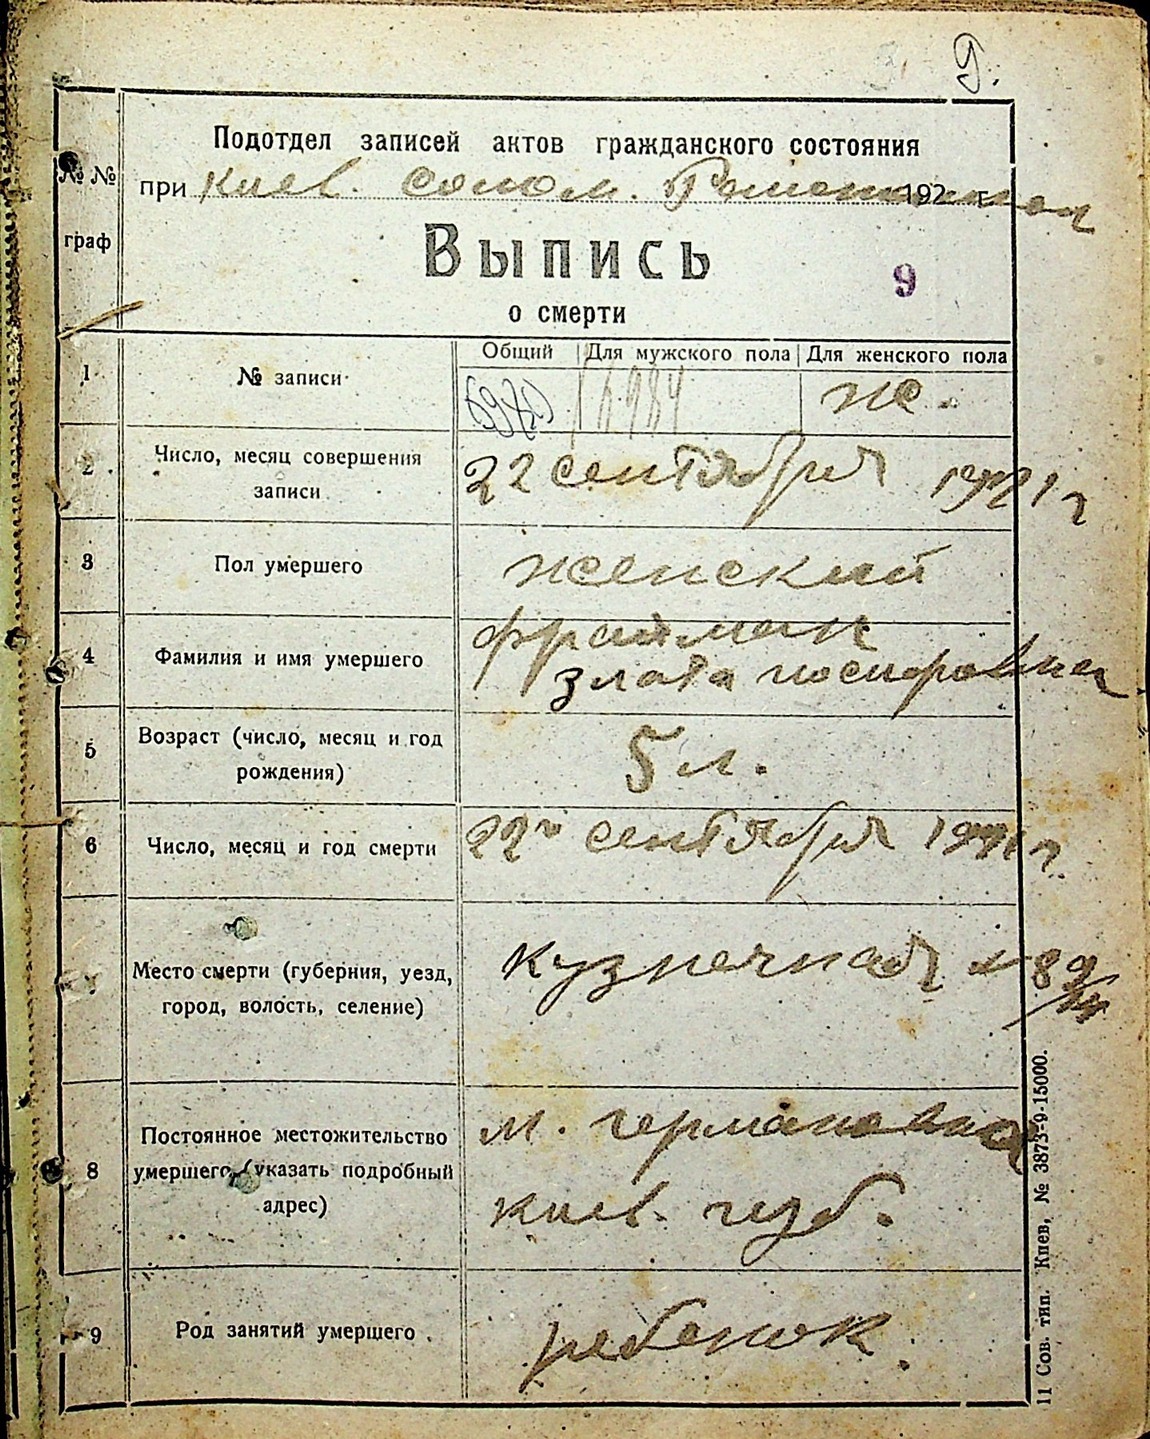 9.
Подотдел записей актов гражданского состояния
при Киев. солом. 192 г.
№ №
граф
Выпись
9
о смерти
Общий Для мужского пола Для женского пола
1 № записи 6980 6984 же.
2 Число, месяц совершения
записи
22 сентября 1921 г
3 Пол умершего женский
4 Фамилия и имя умершего
Фрайман
Злата Иосифовна
5 Возраст (число, месяц и год
рождения)
5 л.
6 Число, месяц и год смерти 22го сентября 1921 г.
7 Место смерти (губерния, уезд,
город, волость, селение)
Кузнечная № 89
8 Постоянное местожительство
умершего (указать подробный
адрес)
м. Германовка
Киев. губ.
9 Род занятий умершего ребенок.
11 Сов. тип. Киев, № 3873-9-15000.